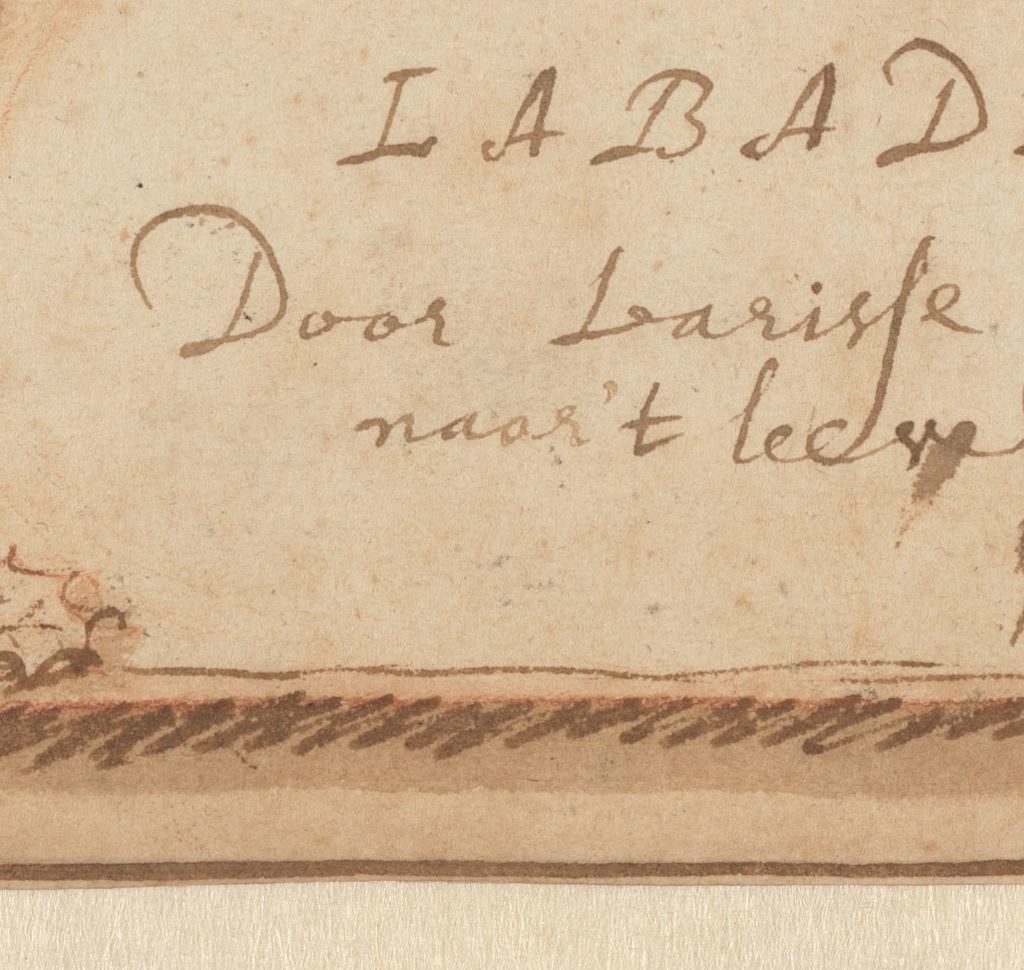 LABAD
Door Larisse
naar't leev